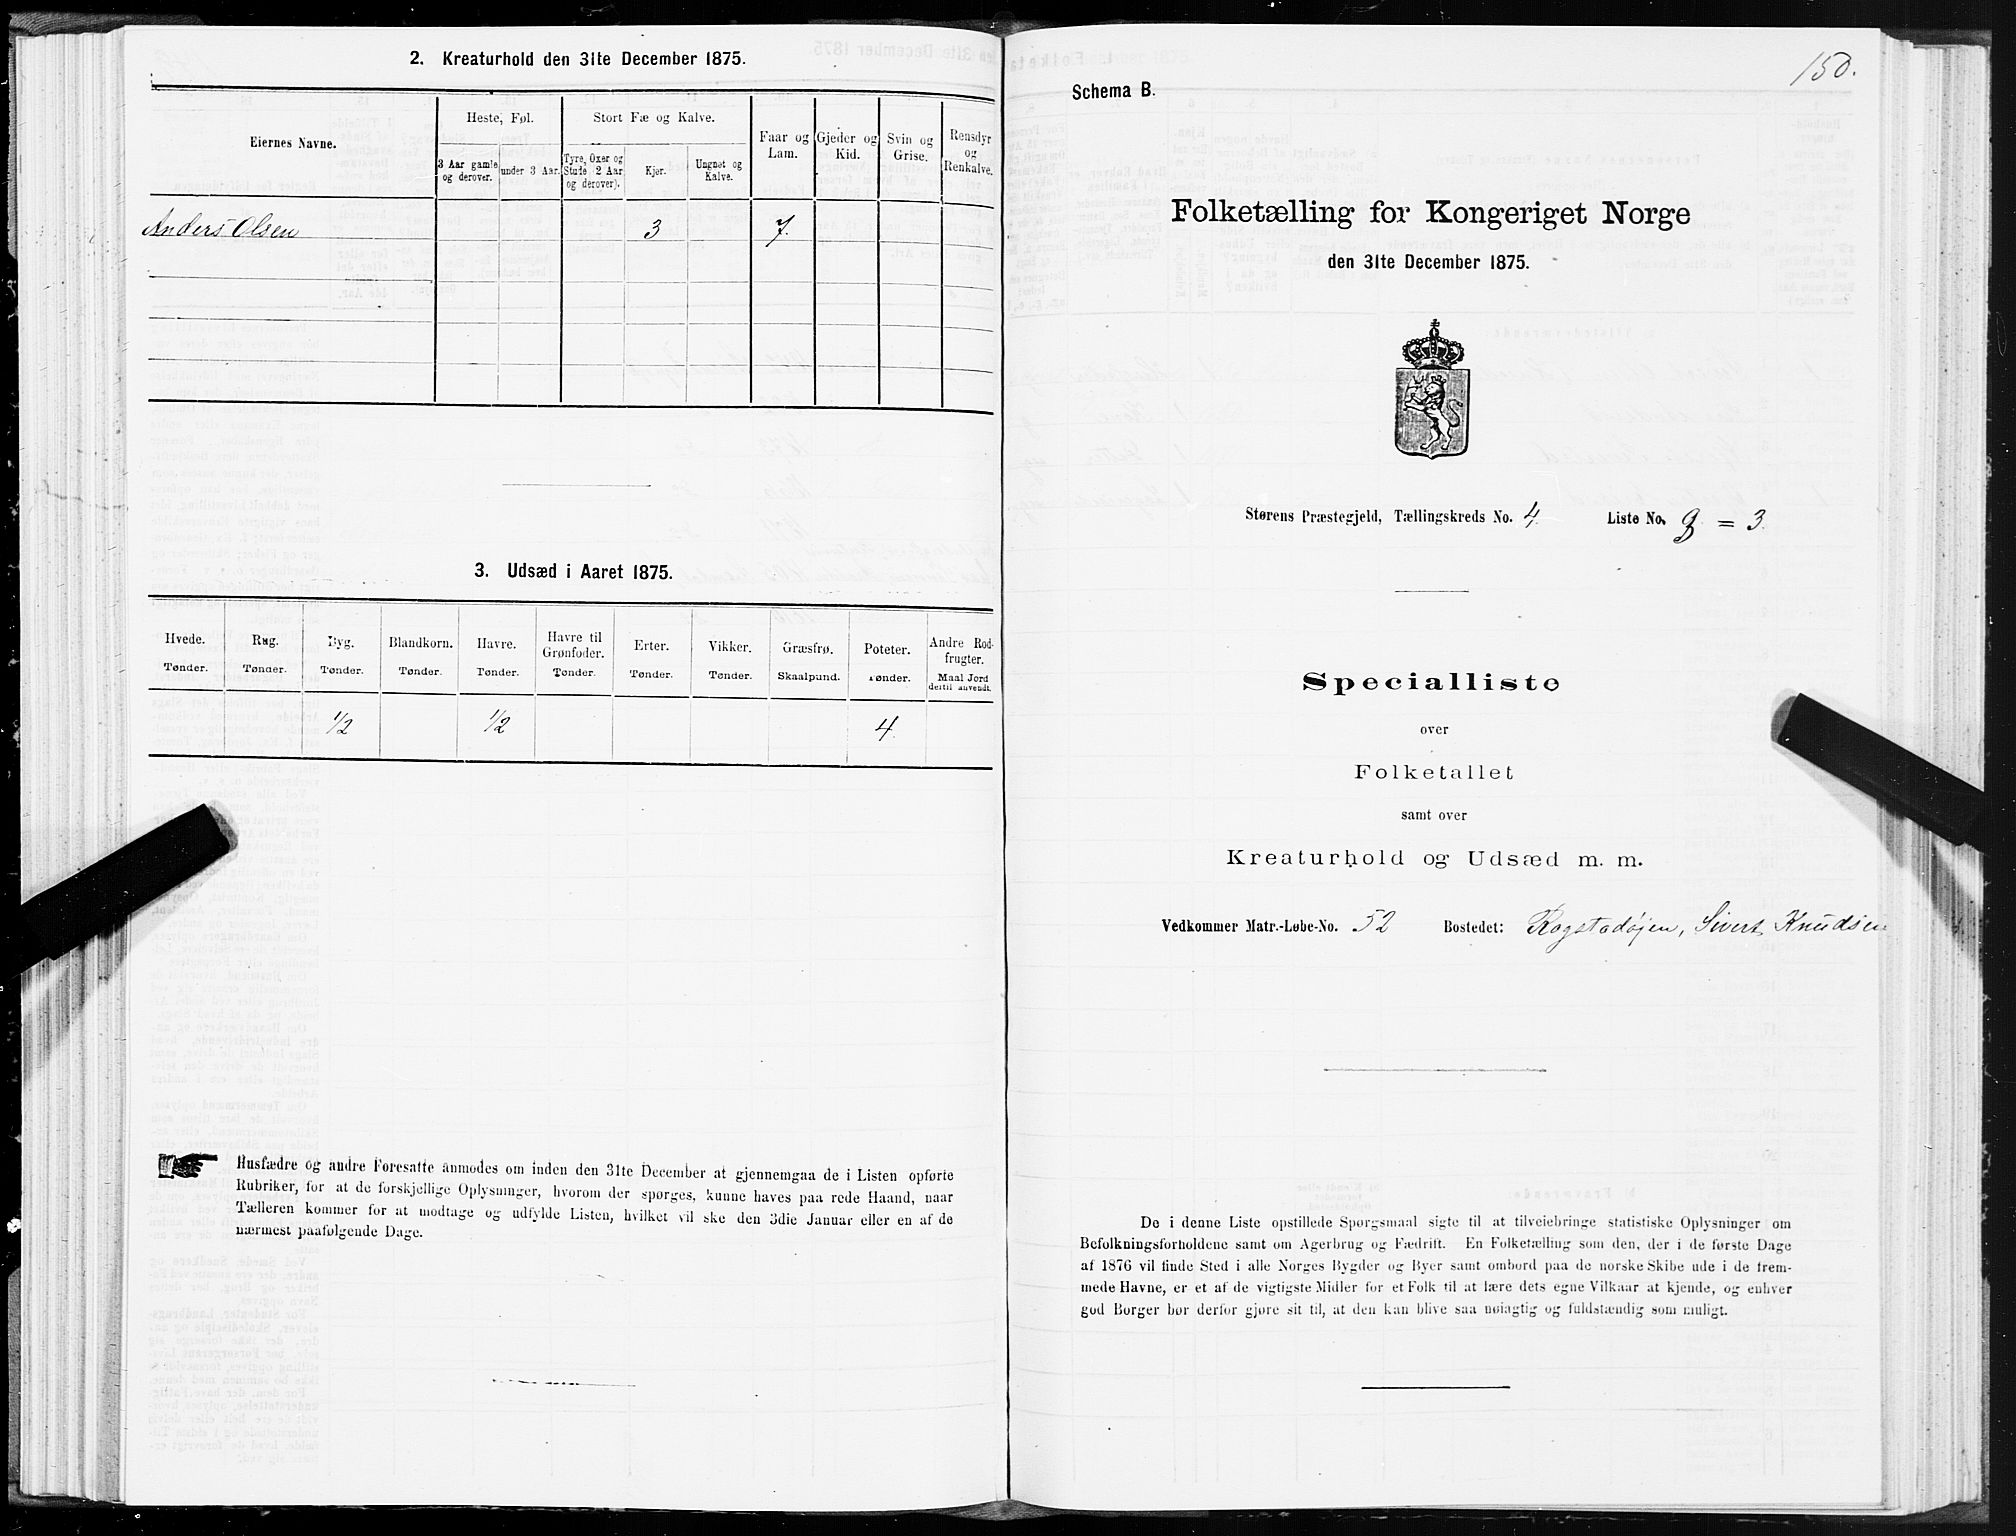 2. Kreaturhold den 31te December 1875.
Eiernes Navne.
Heste, Føl.
Stort Fæ og Kalve.
Faar og Lam.
Gjeder og Kid.
Svin og Grise.
Rensdyr og Renkalve.
3 Aar gamle og derover.
under 3 Aar.
Tyre, Oxer og Stude (2 Aar og derover).
Kjør.
Ungnøt og Kalve.
Anders Olsen 3 7.
3. Udsæd i Aaret 1875.
Hvede. Rug. Byg. Blandkorn. Havre. Havre til Grønfoder. Erter. Vikker. Græsfrø. Poteter. Andre Rodfrugter.
Tønder. Tønder. Tønder. Tønder. Tønder. Tønder. Tønder. Tønder. Skaalpund. Tønder. Maal Jord dertil anvendt.
1/2 1/2 4.
Husfædre og andre Foresatte anmodes om inden den 31te December at gjennemgaa de i Listen opførte
Rubriker, for at de forskjellige Oplysninger, hvorom der spørges, kunne haves paa rede Haand, naar
Tælleren kommer for at modtage og udfylde Listen, hvilket vil ske den 3die Januar eller en af de
nærmest paafølgende Dage.
150.
Schema B.
Folketælling for Kongeriget Norge
den 31te December 1875.
Størens Præstegjeld, Tællingskreds No. 4. Liste No. 9 = 3.
Specialliste
over
Folketallet
samt over
Kreaturhold og Udsæd m. m.
Vedkommer Matr.-Løbe-No. 52 Bostedet: Rogstadøjen, Sivert Knudsen
De i denne Liste opstillede Spørgsmaal sigte til at tilveiebringe statistiske Oplysninger om
Befolkningsforholdene samt om Agerbrug og Fædrift. En Folketælling som den, der i de første Dage
af 1876 vil finde Sted i alle Norges Bygder og Byer samt ombord paa de norske Skibe ude i de frem-
mede Havne, er et af de vigtigste Midler for et Folk til at lære dets egne Vilkaar at kjende, og enhver
god Borger bør derfor gjøre sit til, at den kan blive saa nøiagtig og fuldstændig som muligt.